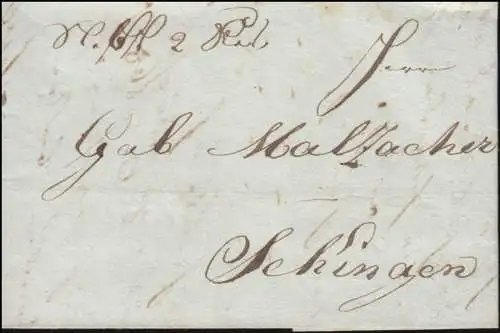 2
Herrn
Gab Malzacher
Sekingen